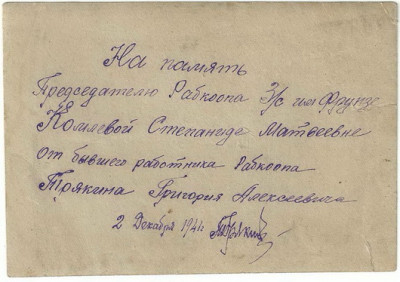 На память
Председателю Рабкоопа З/с им Фрунзе
Комлевой Степаниде Матвеевне
от бывшего работника Рабкоопа
Трякина Григория Алексеевича
2 Декабря 1941г